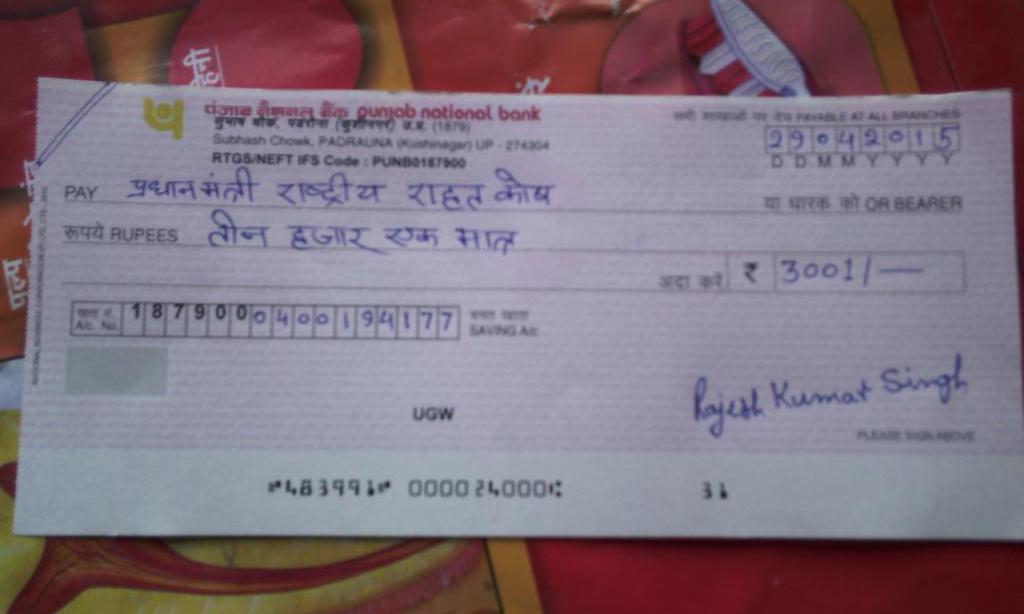 पंजाब नैशनल बैंक punjab national bank
सुभाष चौक, पडरौना (कुशीनगर) उ.प्र. (1879)
Subhash Chowk, PADRAUNA (Kushinagar) UP - 274304
RTGS/NEFT IFS Code : PUNB0187900
सभी शाखाओं पर देय PAYABLE AT ALL BRANCHES
29042015
D D M M Y Y Y Y
PAY प्रधानमंत्री राष्ट्रीय राहत कोष या धारक को OR BEARER
रूपये RUPEES तीन हजार एक मात्र
अदा करें ₹ 3001/—
खाता सं. A/c. No. 1879000400194177 बचत खाता SAVING A/c
Rajesh Kumar Singh
UGW
PLEASE SIGN ABOVE
⑈483991⑈ 000024000⑆ 31